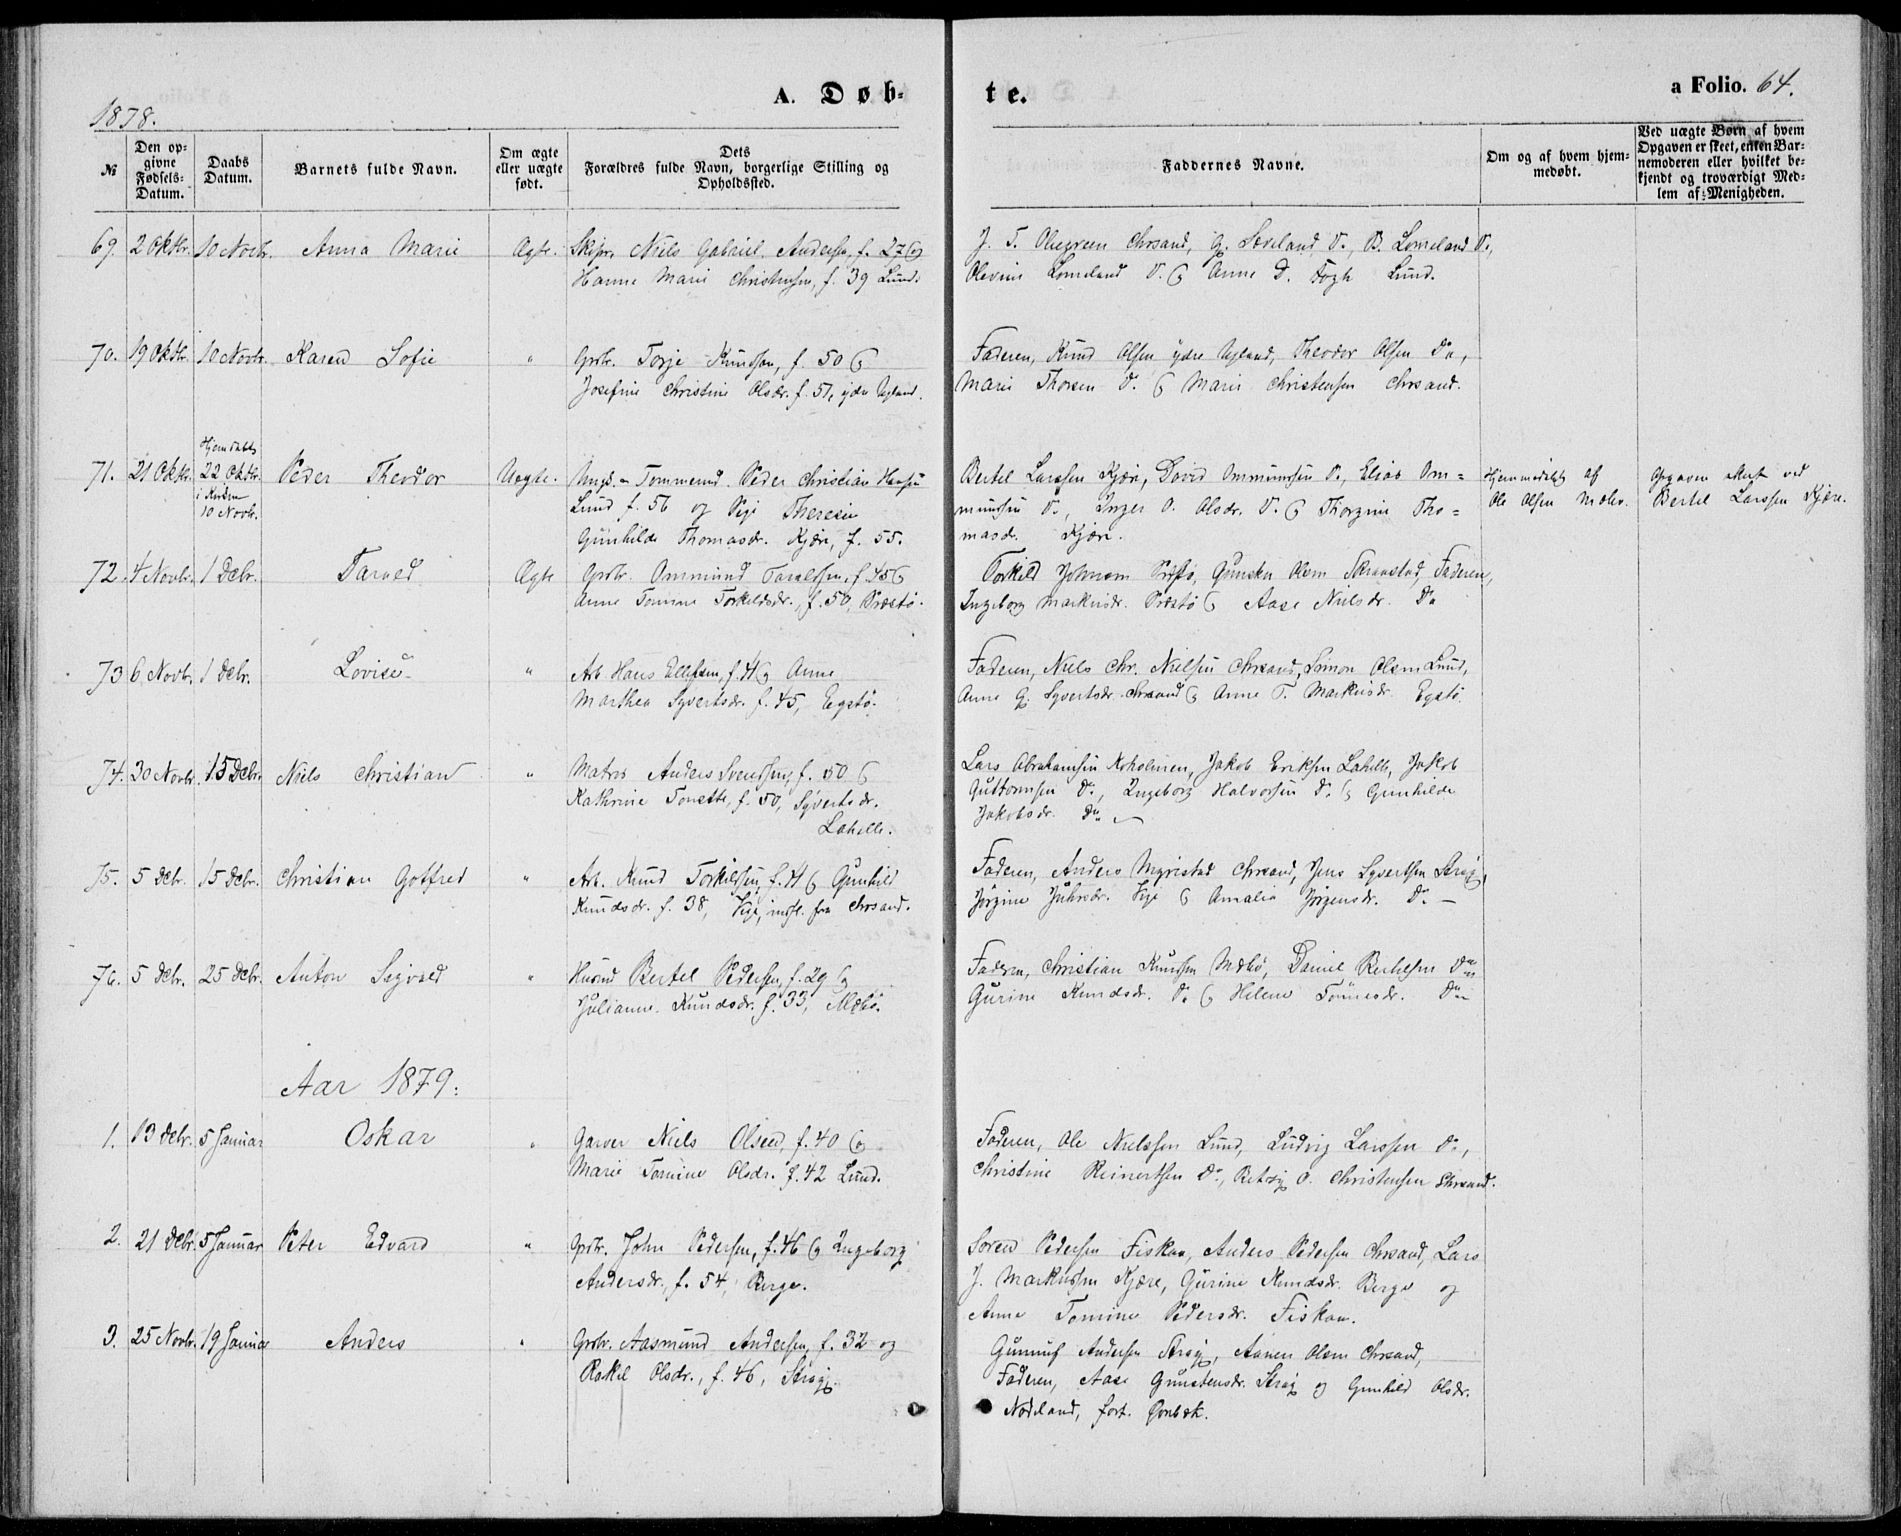 1878.
A. Døb-
te.
a Folio. 64.
№
Den op-
givne
Fødsels-
Datum.
Daabs
Datum.
Barnets fulde Navn.
Om ægte
eller uægte
født.
Dets
Forældres fulde Navn, borgerlige Stilling og
Opholdssted.
Faddernes Navne.
Om og af hvem hjem-
medøbt.
Ved uægte Børn af hvem
Opgaven er skeet, enten Bar-
nemoderen eller hvilket be-
kjendt og troværdigt Med-
lem af Menigheden.
69. 2 Oktbr. 10 Novbr. Anna Marie Ægte. Skipr. Niels Gabriel Andersen, f. 27 og
Hanne Marie Christensen, f. 39 Lund.
J. T. Chrsand, G. Lomeland D., B. Lomeland D.,
Olevine Lomeland D. og Anne D. Fogh Lund.
70. 19 Oktbr. 10 Novbr. Karen Sofie " Gbrbr. Terje Knudsen, f. 50 og
Josefine Christine Olsdr. f. 51, ydre Ugland.
Faderen, Knud Olsen ydre Ugland, Theodor Olsen Do,
Marie Thorsen D. og Marie Christensen Chrsand.
71. 21 Oktbr. Hjemdøbt
22 Oktbr.
i Kirken
10 Novbr.
Peder Theodor Uægte. Ungk. Tømmermd. Peder Christian Hansen
Lund f. 56 og Pige Therese
Gunhilde Thomasdr. Kjære, f. 55.
Bertel Larssen Kjære, David Ommundsen D., Elias Om=
mundsen D., Inger O. Olsdr. D. og Thorgine Tho=
masdr. Kjære.
Hjemmedøbt af
Ole Olsen
Opgaven skeet ved
Bertel Larssen Kjære.
72. 4 Novbr. 1 Debr. Tarald Ægte Gbrbr. Ommund Taraldsen, f. 45 og
Anne Tomine Torkildsdr., f. 50, Præstø.
Torkild Johnsen Præstø, Gunsten Olsen Skraastad, Faderen,
Ingeborg Markusdr. Præstø og Aase Nielsdr. Do
73 6 Novbr. 1 Debr. Lovise " Arb. Hans Ellefsen, f. 41 og Anne
Marthea Syvertsdr. f. 45, Egstø.
Faderen, Niels Chr. Nielsen Chrsand, Simon Olsen Lund,
Anne G. Syvertsdr. Chrsand og Anne T. Markusdr. Egstø.
74. 30 Novbr. 15 Debr. Niels Christian " Matros Anders Svendsen, f. 50 og
Kathrine Tonette, f. 50, Syvertsdr.
Lahelle.
Lars Abrahamsen Koholmen, Jakob Eriksen Lahelle, Jakob
Guttormsen D., Ingeborg Halvorsen D. og Gunhilde
Jakobsdr. Do
75. 5 Debr. 15 Debr. Christian Gotfred " Arb. Knud Torkildsen, f. 41 og Gunhild
Knudsdr. f. 38, Vige, indfl. fra Chrsand.
Faderen, Anders Myrestad Chrsand, Jens Syvertsen Strøj,
Jørgine Vige og Amalia Jørgensdr. D.
76. 5 Debr. 25 Debr. Anton Sigvald " Husmd. Bertel Pedersen, f. 29 og
Juliane Knudsdr. f. 33, Mebø.
Faderen, Christian Knudsen Mebø, Daniel Bertelsen Do
Gurine Knudsdr. D. og Helene Tønnesdr. Do
Aar 1879:
1. 13 Debr. 5 Januar Oskar " Garver Niels Olsen, f. 40 og
Marie Tomine Olsdr. f. 42 Lund.
Faderen, Ole Nielssen Lund, Ludvig Larssen Do,
Christine Reinertsen Do, Betsy O. Christensen Chrsand.
2. 21 Debr. 5 Januar Peter Edvard " Gbrbr. John Pedersen, f. 46 og Ingeborg
Andersdr., f. 54, Berge.
Søren Pedersen Fiskaa, Anders Pedersen Chrsand, Lars
J. Markussen Kjære, Gurine Knudsdr. Berge og
Anne Tomine Pedersdr. Fiskaa.
3. 25 Novbr. 19 Januar Anders " Gbrbr. Aasmund Andersen, f. 32 og
Rakel Olsdr., f. 46, Strøj.
Gunnuf Andersen Strøj, Aanen Olsen Chrsand,
Faderen, Aase Gunstensdr. Strøj og Gunhild Olsdr.
Nodeland, fort. Øvrebøk.